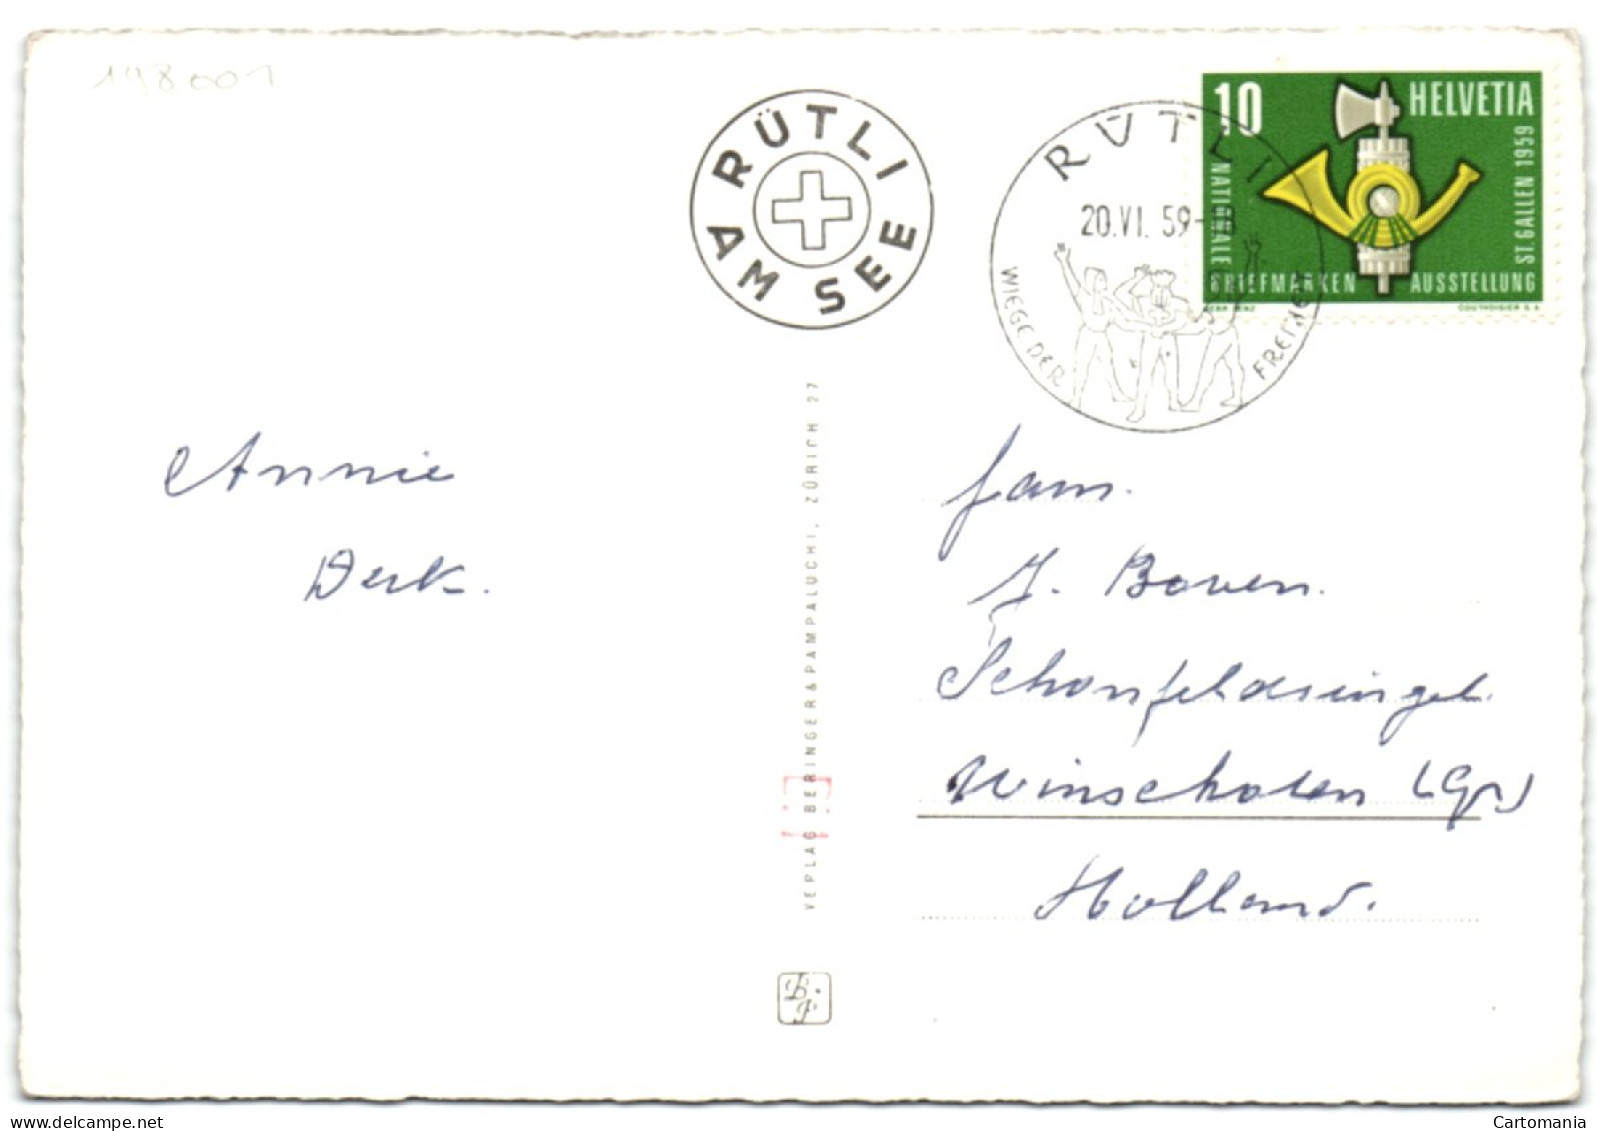 198001
RÜTLI
AM SEE
RÜTLI
20.VI.59-18
WIEGE DER FREIHEIT
10 HELVETIA
NATIONALE BRIEFMARKEN AUSSTELLUNG ST. GALLEN 1959
COURVOISIER S.A.
Annie
Derk.
VERLAG BERINGER & PAMPALUCHI, ZÜRICH 27
fam.
J. Boven.
Schönfeldsingel.
Winschoten (Gr.)
Holland.
B.P.
Cartomania